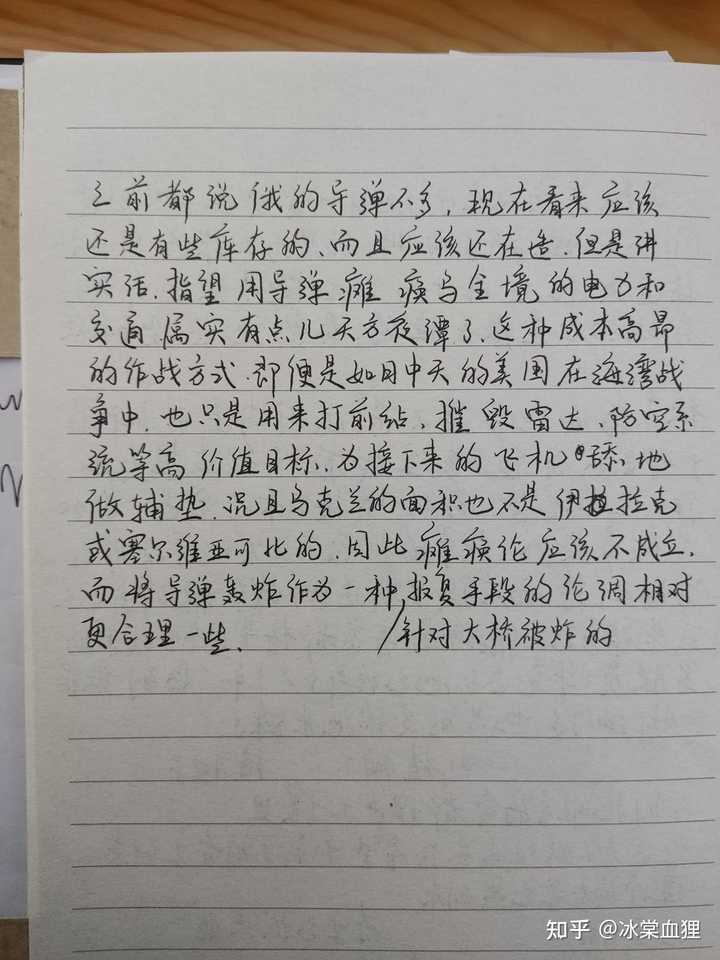 之前都说俄的导弹不多，现在看来应该
还是有些库存的、而且应该还在造．但是讲
实话．指望用导弹瘫痪乌全境的电力和
交通．属实有点儿天方夜谭了、这种成本高昂
的作战方式．即便是如日中天的美国在海湾战
争中．也只是用来打前站、摧毁雷达、防空系
统等高价值目标．为接下来的飞机舔地
做辅垫．况且乌克兰的面积也不是伊拉克
或塞尔维亚可比的．因此瘫痪论应该不成立．
而将导弹轰炸作为一种报复手段的论调相对
更合理一些．
针对大桥被炸的
知乎 @冰棠血狸